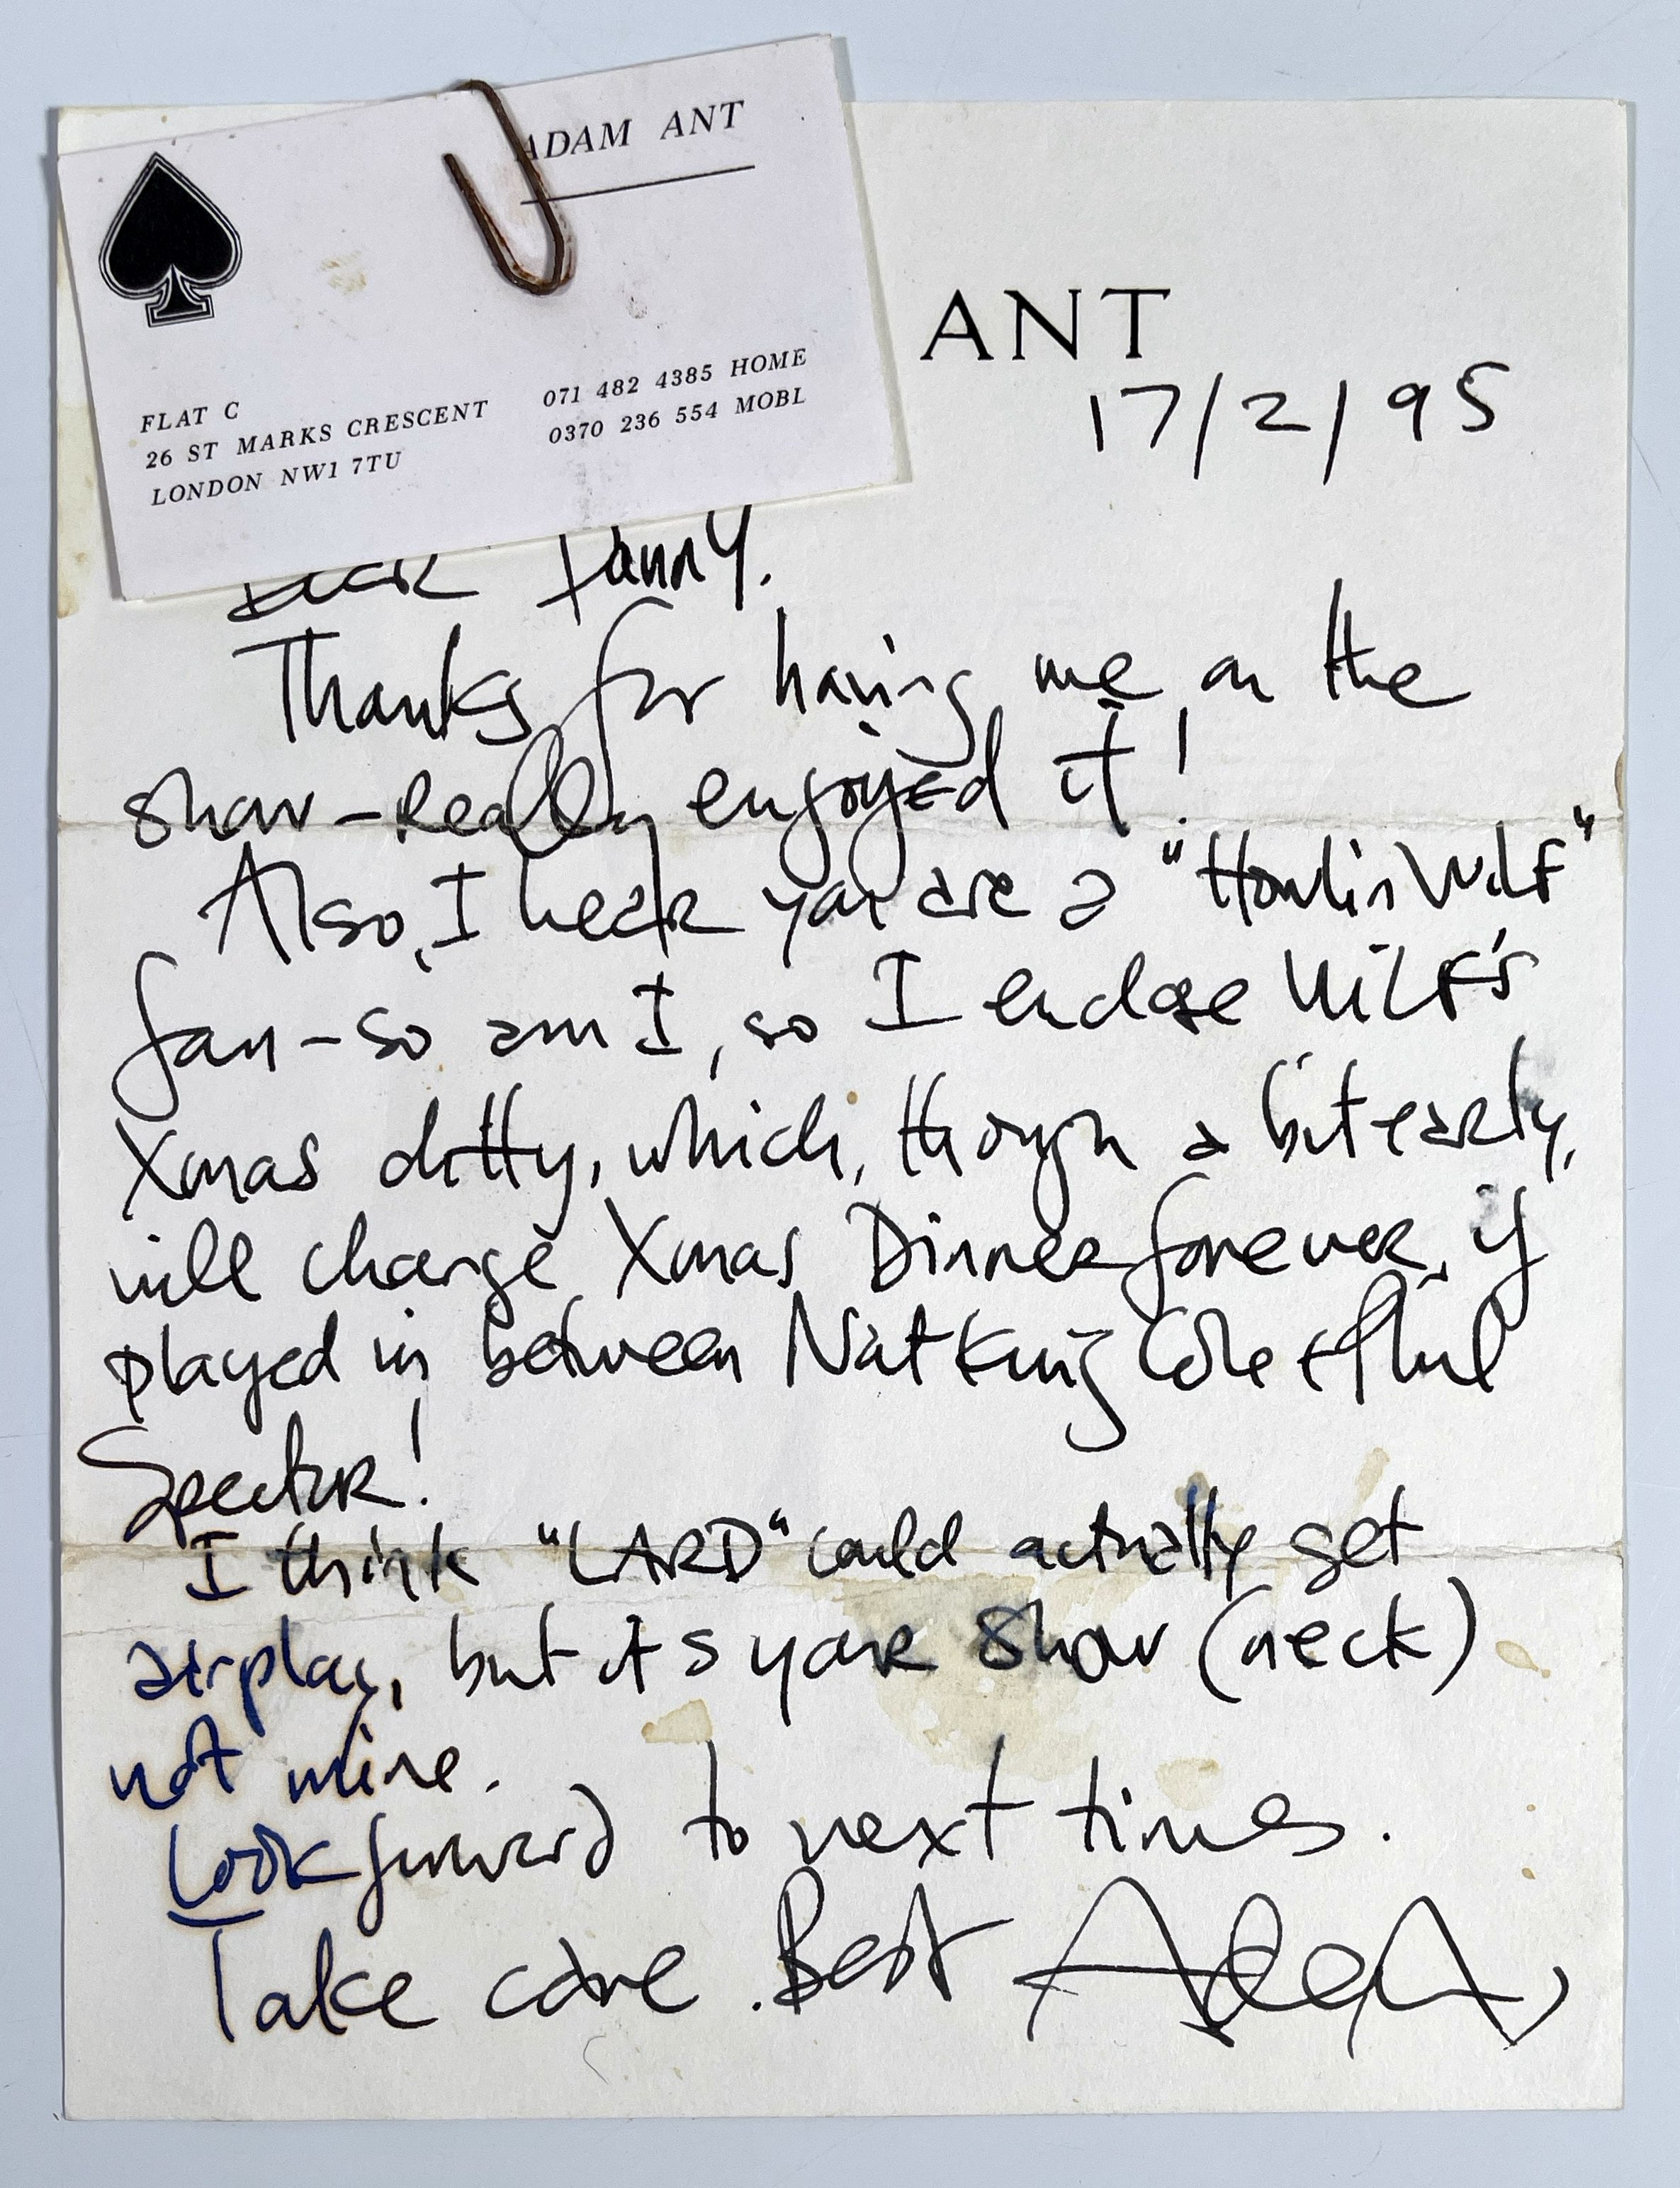 ADAM ANT
FLAT C
26 ST MARKS CRESCENT
LONDON NW1 7TU
071 482 4385 HOME
0370 236 554 MOBL
ANT
17/2/95
Dear Danny.
Thanks for having me on the
show - Really enjoyed it!
Also, I hear you are a "Howlin Wilf"
fan - so am I, so I enclose Wilf's
Xmas ditty, which, though a bit early,
will change Xmas Dinner forever, if
played in between Nat King Cole + Phil
Spector!
I think "LARD" could actually get
airplay, but it's your show (neck)
not mine.
Look forward to next times.
Take care. Best Adam